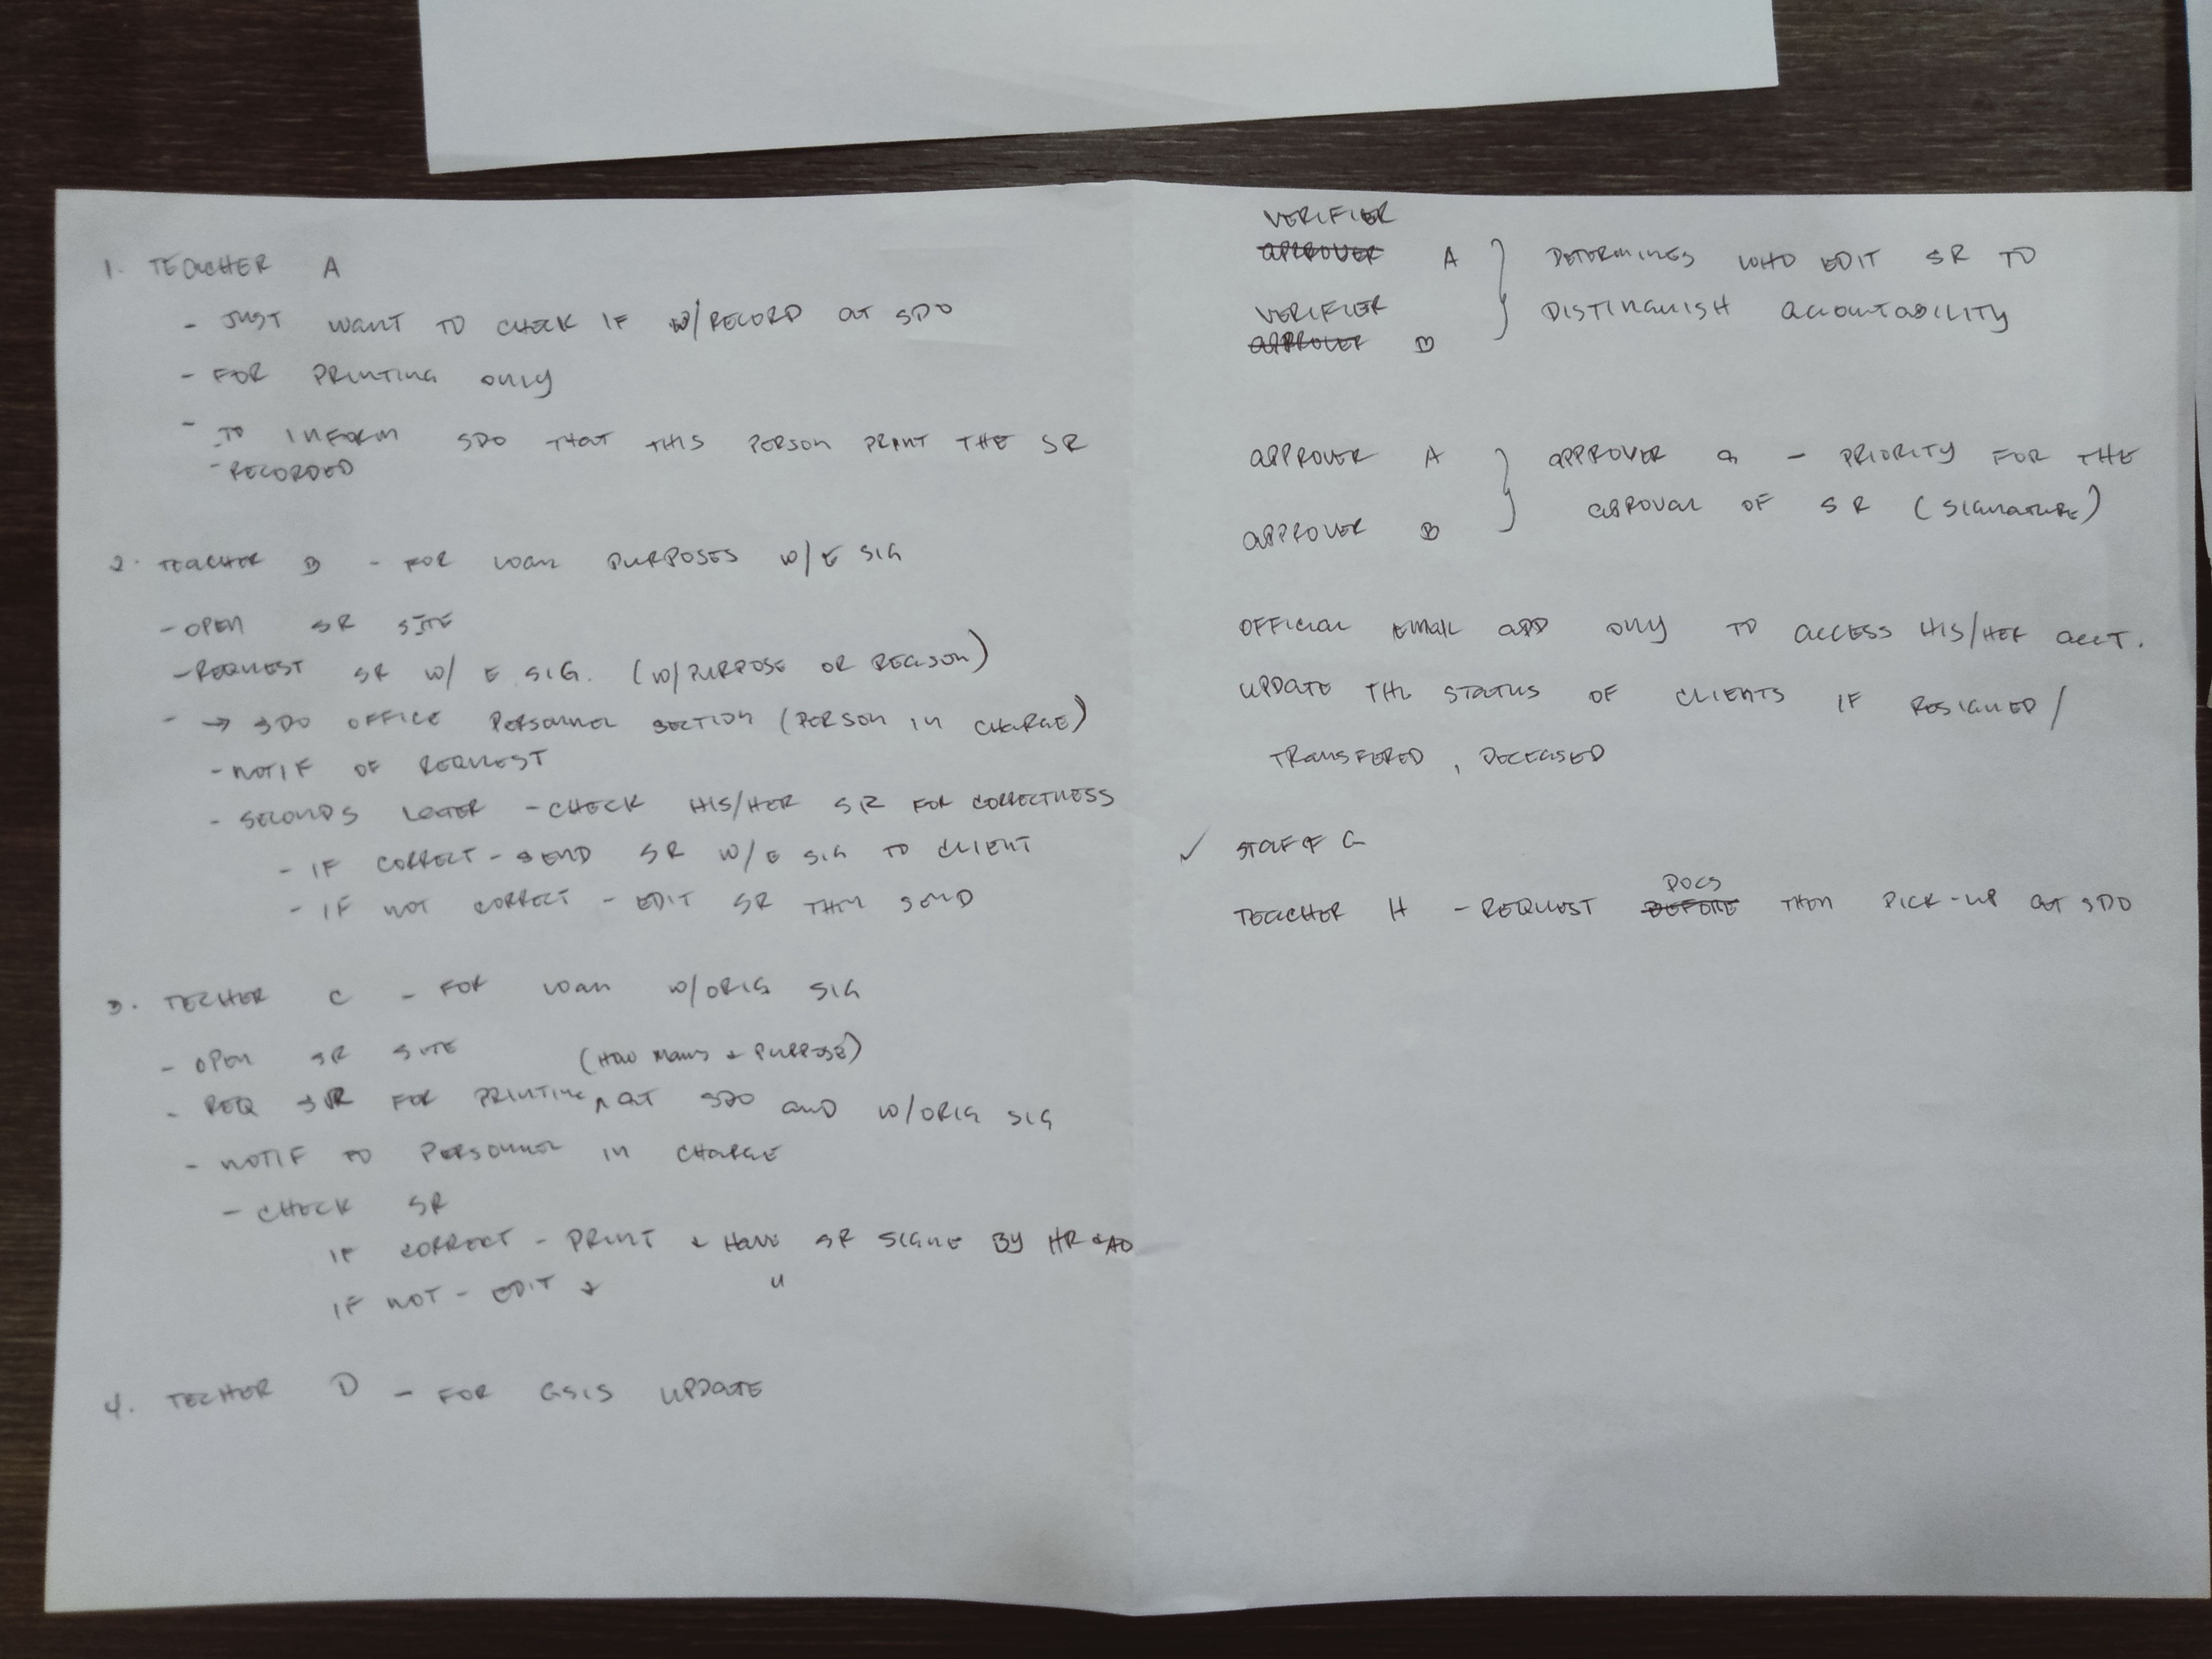 1. TEACHER A
- JUST WANT TO CHECK IF W/RECORD AT SDO
- FOR PRINTING ONLY
- TO INFORM SDO THAT THIS PERSON PRINT THE SR
- RECORDED
2. TEACHER B - FOR LOAN PURPOSES W/ E SIG
- OPEN SR SITE
- REQUEST SR W/ E SIG. (W/PURPOSE OR REASON)
- → SDO OFFICE PERSONNEL SECTION (PERSON IN CHARGE)
- NOTIF OF REQUEST
- SECONDS LATER - CHECK HIS/HER SR FOR CORRECTNESS
- IF CORRECT - SEND SR W/ E SIG TO CLIENT
- IF NOT CORRECT - EDIT SR THEN SEND
3. TECHER C - FOR LOAN W/ORIG SIG
- OPEN SR SITE (HOW MANY & PURPOSE)
- REQ SR FOR PRINTING ^ AT SDO AND W/ORIG SIG
- NOTIF TO PERSONNEL IN CHARGE
- CHECK SR
IF CORRECT - PRINT & HAVE SR SIGNE BY HR & AO
IF NOT - EDIT & "
4. TECHER D - FOR GSIS UPDATE
VERIFIER
APPROVER A } DETERMINES WHO EDIT SR TO
VERIFIER DISTINGUISH ACCOUNTABILITY
APPROVER B
APPROVER A } APPROVER a - PRIORITY FOR THE
APPROVER B APROVAL OF SR (SIGNATURE)
OFFICIAL EMAIL ADD ONLY TO ACCESS HIS/HER ACCT.
UPDATE THE STATUS OF CLIENTS IF RESIGNED /
TRANSFERED, DECEASED
✓ STAFF G
DOCS
TEACHER H - REQUEST BEFORE THEN PICK-UP AT SDO